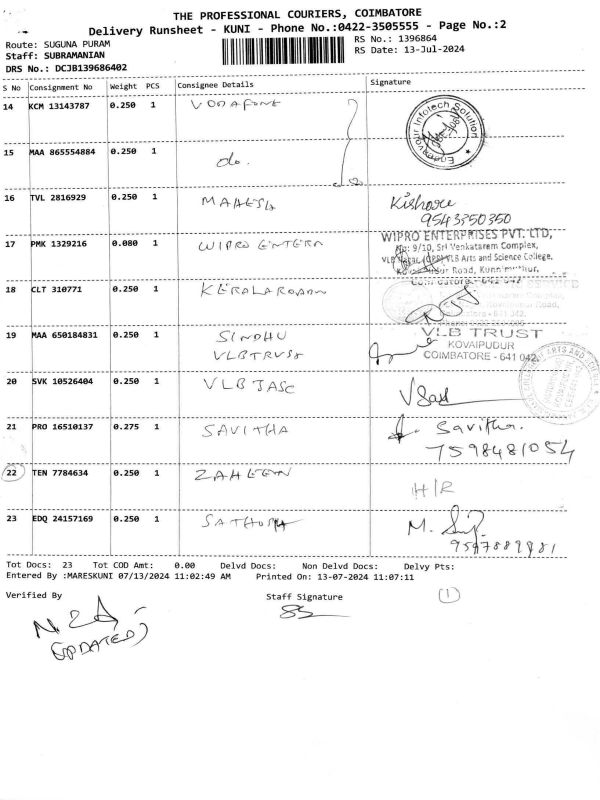 THE PROFESSIONAL COURIERS, COIMBATORE
Delivery Runsheet - KUNI - Phone No.:0422-3505555 - Page No.:2
Route: SUGUNA PURAM
RS No.: 1396864
Staff: SUBRAMANIAN
RS Date: 13-Jul-2024
DRS No.: DCJB139686402
S No Consignment No Weight PCS Consignee Details Signature
14 KCM 13143787 0.250 1 VODAFONE
Endeavour Infotech Solution
15 MAA 865554884 0.250 1 do.
16 TVL 2816929 0.250 1 MAHESH Kishore
9543350350
17 PMK 1329216 0.080 1 WIPRO ENTERN
WIPRO ENTERPRISES PVT. LTD,
No: 9/10, Sri Venkatarem Complex,
VLB Arts and Science College,
Road, Kuniamuthur,
Coimbatore - 641 042
18 CLT 310771 0.250 1 KERALAROADN
19 MAA 650184831 0.250 1 SINDHU
VLBTRUST
VLB TRUST
KOVAIPUDUR
COIMBATORE - 641 042.
20 SVK 10526404 0.250 1 VLB JASC
21 PRO 16510137 0.275 1 SAVITHA Savitha.
7598481054
22 TEN 7784634 0.250 1 ZAHEEN H/R
23 EDQ 24157169 0.250 1 SATHOSH
Tot Docs: 23 Tot COD Amt: 0.00 Delvd Docs: Non Delvd Docs: Delvy Pts:
Entered By :MARESKUNI 07/13/2024 11:02:49 AM Printed On: 13-07-2024 11:07:11
Verified By Staff Signature 1
(UPDATED)